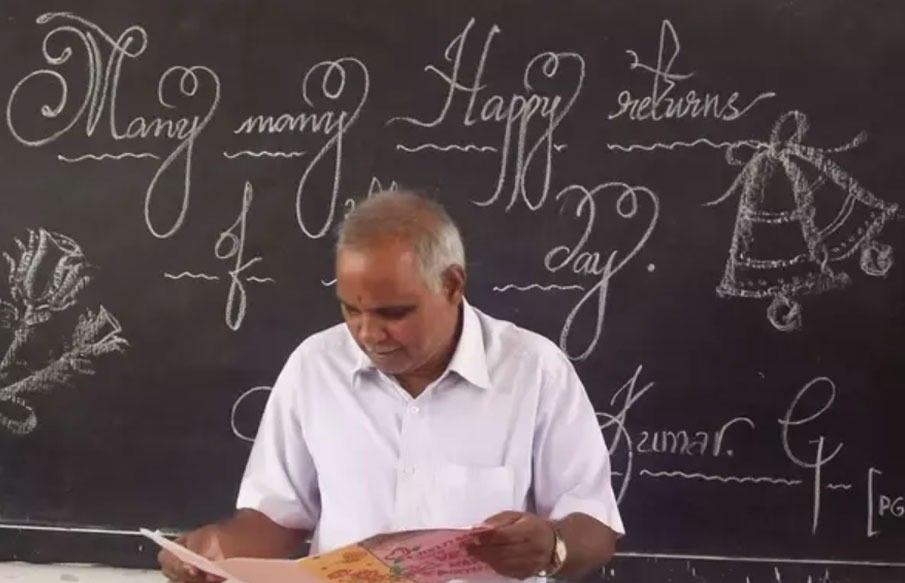 Many many Happy returns
of day.
Kumar. G
[PG